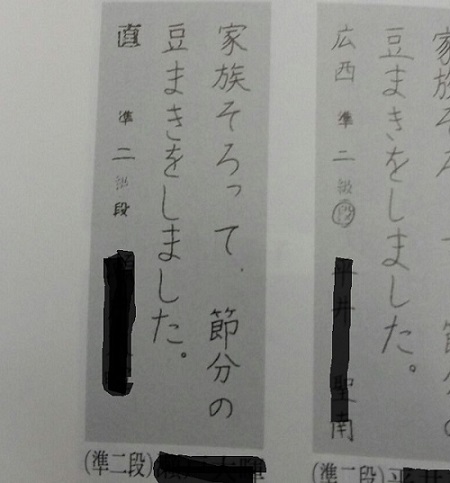 家族そろ
豆まきをしました。
広西 準二級段
(準二段)
家族そろって、節分の
豆まきをしました。
直 準二級段
(準二段)